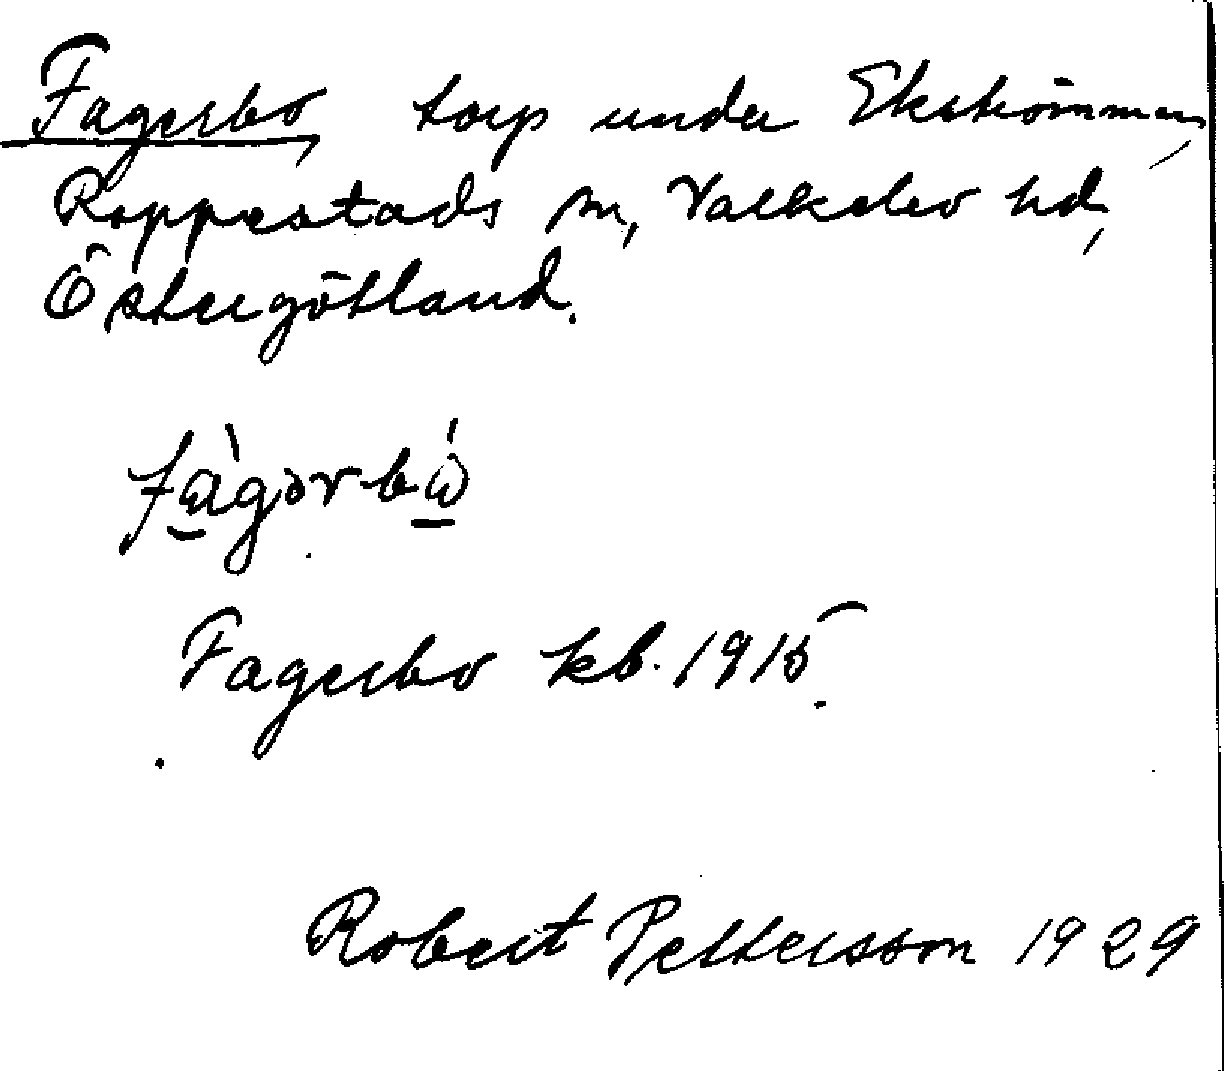 Fagerbo, torp under Ekströmmen,
Rappestads sn, Valkebo hd,
Östergötland.
fàgərbó
Fagerbo kb. 1915.
Robert Pettersson 1929